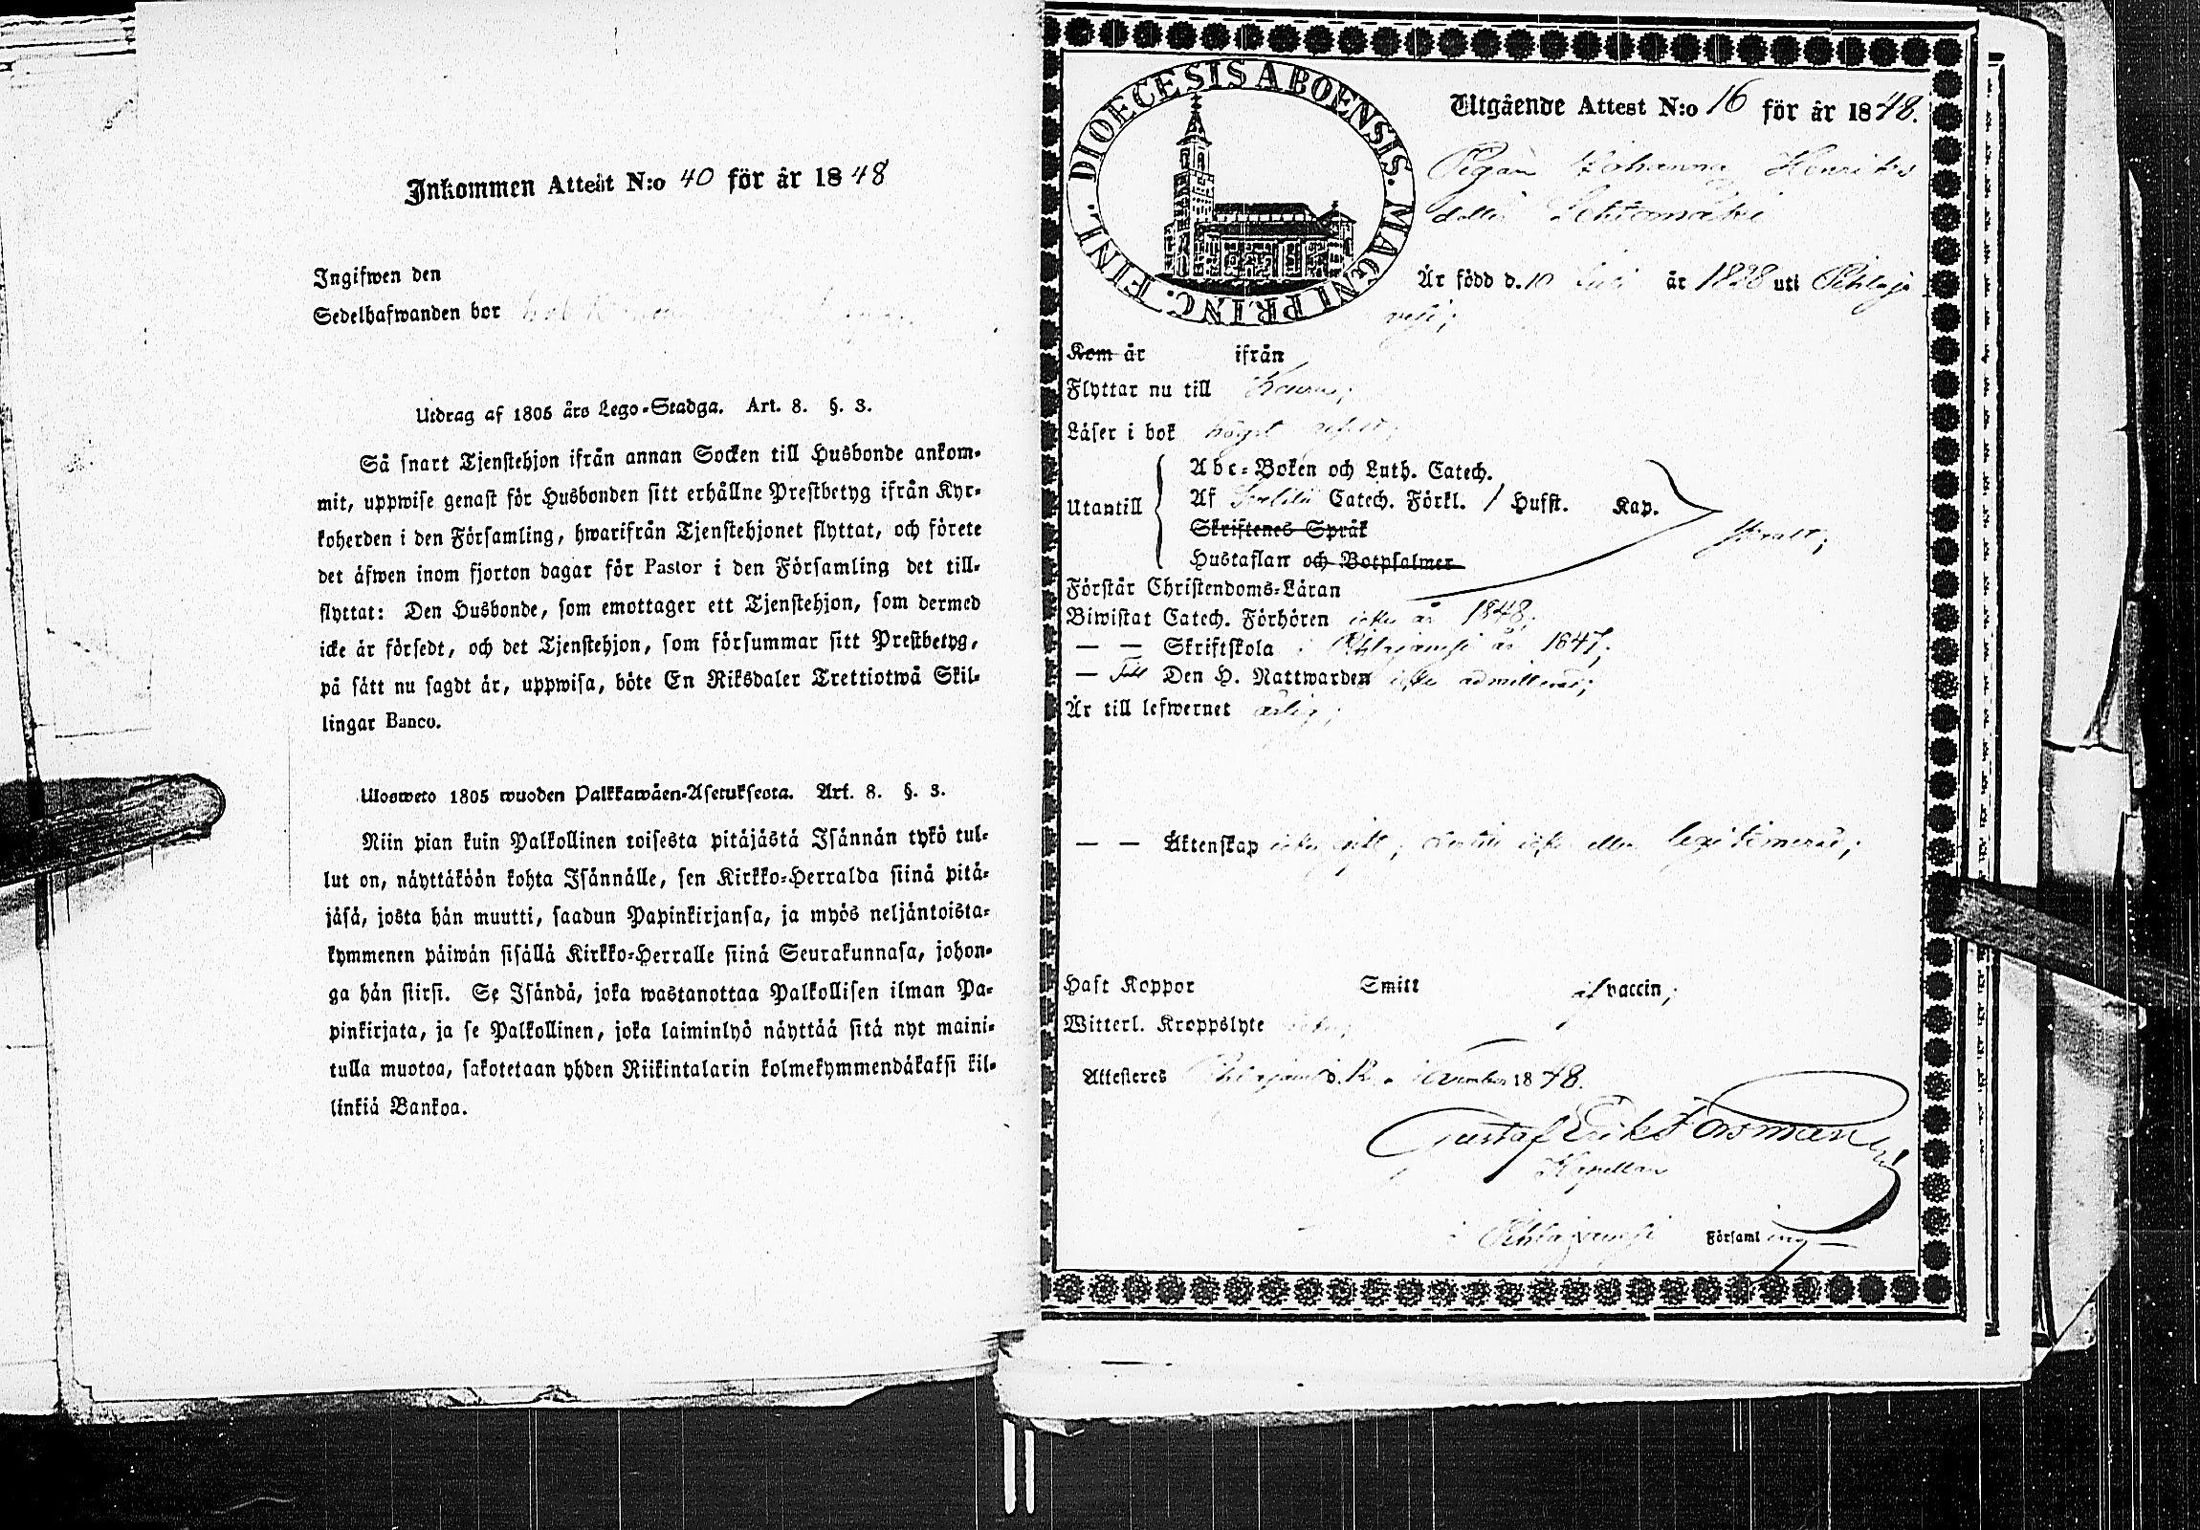 Inkommen Attest N:o 40 för år 1848
Ingifwen den
Sedelhafwanden bor
Utdrag af 1805 års Lego-Stadga. Art. 8. §. 3.
Så snart Tjenstehjon ifrån annan Socken till Husbonde ankom-
mit, uppwise genast för Husbonden sitt erhållne Prestbetyg ifrån Kyr-
koherden i den Församling, hwarifrån Tjenstehjonet flyttat, och förete
det äfwen inom fjorton dagar för Pastor i den Församling det till-
flyttat: Den Husbonde, som emottager ett Tjenstehjon, som dermed
icke är försedt, och det Tjenstehjon, som försummar sitt Prestbetyg,
på sått nu sagdt är, uppwisa, böte En Riksdaler Trettiotwå Skil-
lingar Banco.
Ulosweto 1805 wuoden Palkkawäen-Asetuksesta. Art. 8. §. 3.
Niin pian kuin Palkollinen toisesta pitäjästä Isännän tykö tul-
lut on, näyttäköön kohta Isännälle, sen Kirkko-Herralda siinä pitä-
jäsä, josta hän muutti, saadun Papinkirjansa, ja myös neljäntoista-
kymmenen päiwän sisällä Kirkko-Herralle siinä Seurakunnasa, johon-
ga hän siirsi. Se Isändä, joka wastanottaa Palkollisen ilman Pa-
pinkirjata, ja se Palkollinen, joka laiminlyö näyttää sitä nyt maini-
tulla muotoa, sakotetaan yhden Riikintalarin kolmekymmendäkaksi kil-
linkiä Bankoa.
DIOECESIS ABOENSIS. MAGNI PRINC. FINL.
Utgående Attest N:o 16 för år 1848.
Pigan Johanna Henriks
dotter Lehtomäki
Är född d. 10 Juli år 1828 uti Pihlaja
vesi;
Kom år ifrån
Flyttar nu till Keuru;
Läser i bok högst
Utantill
Abc-Boken och Luth. Catech.
Af Catech. Förkl. / Husst. Kap.
Skriftenes Språk
Hustaflan och Botpsalmer
Förstår Christendoms-Läran
Biwistat Catech. Förhören år 1848;
— — Skriftskola i Pihlajavesi år 1847;
— Till Den H. Nattwarden icke admitterad;
Är till lefwernet ärlig;
— — Äktenskap icke eller legitimerad;
Haft Koppor Smitt af vaccin;
Witterl. Kroppslyte
Attesteras Pihlajavesi d. 12 November 1848.
Gustaf Erik Forsman
Kapellan
i Pihlajavesi Församling